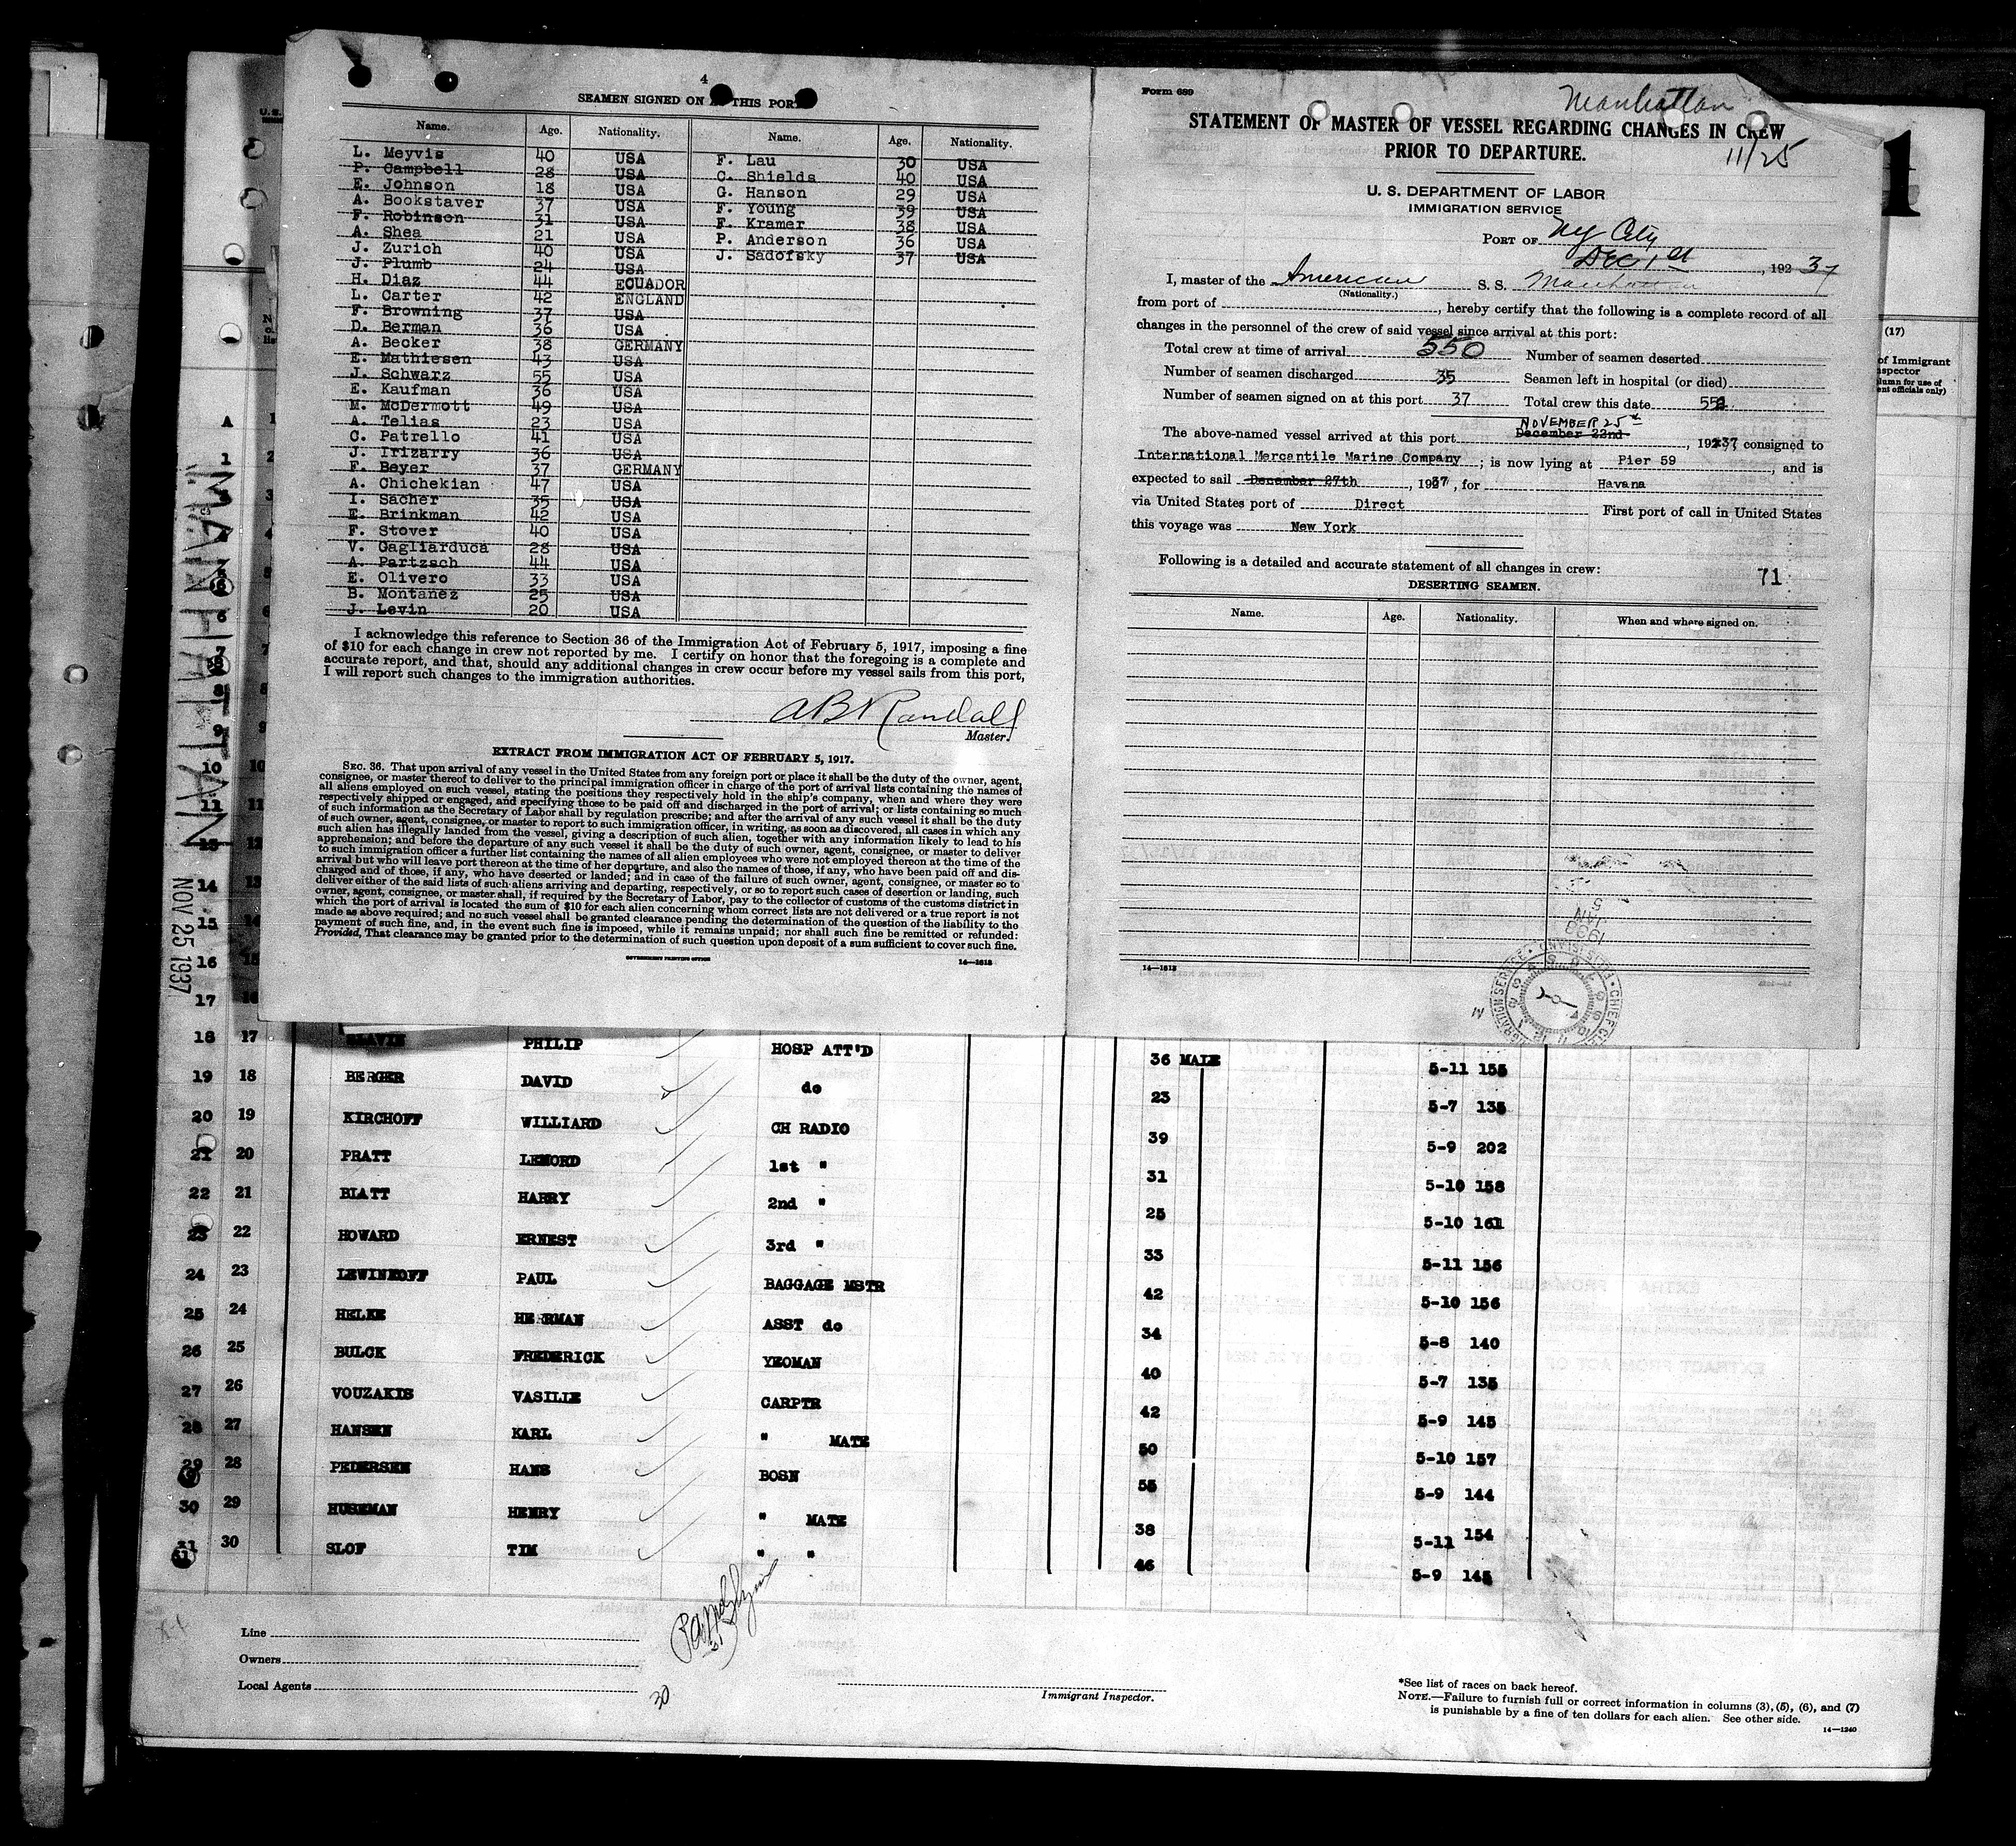 4
SEAMEN SIGNED ON AT THIS PORT
Name. Age. Nationality. Name. Age. Nationality.
L. Meyvis 40 USA F. Lau 30 USA
P. Campbell 28 USA C. Shields 40 USA
E. Johnson 18 USA G. Hanson 29 USA
A. Bookstaver 37 USA F. Young 39 USA
F. Robinson 31 USA F. Kramer 38 USA
A. Shea 21 USA P. Anderson 36 USA
J. Zurich 40 USA J. Sadofsky 37 USA
J. Plumb 24 USA
H. Diaz 44 ECUADOR
L. Carter 42 ENGLAND
F. Browning 37 USA
D. Berman 36 USA
A. Becker 38 GERMANY
E. Mathiesen 43 USA
J. Schwarz 55 USA
E. Kaufman 36 USA
M. McDermott 49 USA
A. Telias 23 USA
C. Patrello 41 USA
J. Irizarry 36 USA
F. Beyer 37 GERMANY
A. Chichekian 47 USA
I. Sacher 35 USA
E. Brinkman 42 USA
F. Stover 40 USA
V. Gagliarduca 28 USA
A. Partzsch 44 USA
E. Olivero 33 USA
B. Montanez 25 USA
J. Levin 20 USA
I acknowledge this reference to Section 36 of the Immigration Act of February 5, 1917, imposing a fine
of $10 for each change in crew not reported by me. I certify on honor that the foregoing is a complete and
accurate report, and that, should any additional changes in crew occur before my vessel sails from this port,
I will report such changes to the immigration authorities.
A B Randall
Master.
EXTRACT FROM IMMIGRATION ACT OF FEBRUARY 5, 1917.
SEC. 36. That upon arrival of any vessel in the United States from any foreign port or place it shall be the duty of the owner, agent,
consignee, or master thereof to deliver to the principal immigration officer in charge of the port of arrival lists containing the names of
all aliens employed on such vessel, stating the positions they respectively hold in the ship's company, when and where they were
respectively shipped or engaged, and specifying those to be paid off and discharged in the port of arrival; or lists containing so much
of such information as the Secretary of Labor shall by regulation prescribe; and after the arrival of any such vessel it shall be the duty
of such owner, agent, consignee, or master to report to such immigration officer, in writing, as soon as discovered, all cases in which any
such alien has illegally landed from the vessel, giving a description of such alien, together with any information likely to lead to his
apprehension; and before the departure of any such vessel it shall be the duty of such owner, agent, consignee, or master to deliver
to such immigration officer a further list containing the names of all alien employees who were not employed thereon at the time of the
arrival but who will leave port thereon at the time of her departure, and also the names of those, if any, who have been paid off and dis-
charged and of those, if any, who have deserted or landed; and in case of the failure of such owner, agent, consignee, or master so to
deliver either of the said lists of such aliens arriving and departing, respectively, or so to report such cases of desertion or landing, such
owner, agent, consignee, or master shall, if required by the Secretary of Labor, pay to the collector of customs of the customs district in
which the port of arrival is located the sum of $10 for each alien concerning whom correct lists are not delivered or a true report is not
made as above required; and no such vessel shall be granted clearance pending the determination of the question of the liability to the
payment of such fine, and, in the event such fine is imposed, while it remains unpaid; nor shall such fine be remitted or refunded:
Provided, That clearance may be granted prior to the determination of such question upon deposit of a sum sufficient to cover such fine.
GOVERNMENT PRINTING OFFICE 14—1613
Form 689
Manhattan
11/25
STATEMENT OF MASTER OF VESSEL REGARDING CHANGES IN CREW
PRIOR TO DEPARTURE.
U. S. DEPARTMENT OF LABOR
IMMIGRATION SERVICE
PORT OF NY City
Dec 1st, 192 37
I, master of the American S. S. Manhattan
(Nationality.)
from port of , hereby certify that the following is a complete record of all
changes in the personnel of the crew of said vessel since arrival at this port:
Total crew at time of arrival 550 Number of seamen deserted
Number of seamen discharged 35 Seamen left in hospital (or died)
Number of seamen signed on at this port 37 Total crew this date 552
NOVEMBER 25th
The above-named vessel arrived at this port December 22nd, 1937, consigned to
International Mercantile Marine Company ; is now lying at Pier 59 , and is
expected to sail December 27th , 1937, for Havana
via United States port of Direct First port of call in United States
this voyage was New York
Following is a detailed and accurate statement of all changes in crew:
71
DESERTING SEAMEN.
Name. Age. Nationality. When and where signed on.
14—1613
1
(17)
MANHATTAN
NOV 25 1937
18 17 SLAVIN PHILIP HOSP ATT'D 36 MALE 5-11 155
19 18 BERGER DAVID do 23 5-7 135
20 19 KIRCHOFF WILLIARD CH RADIO 39 5-9 202
21 20 PRATT LENORD 1st " 31 5-10 158
22 21 BLATT HARRY 2nd " 25 5-10 161
23 22 HOWARD ERNEST 3rd " 33 5-11 156
24 23 LEWINKOFF PAUL BAGGAGE MSTR 42 5-10 156
25 24 HELKE HERRMAN ASST do 34 5-8 140
26 25 BULCK FREDERICK YEOMAN 40 5-7 135
27 26 VOUZAKIS VASILIE CARPTR 42 5-9 145
28 27 HANSEN KARL " MATE 50 5-10 157
29 28 PEDERSEN HANS BOSN 55 5-9 144
30 29 HUSEMAN HENRY " MATE 38 5-11 154
31 30 SLOF TIM " " 46 5-9 145
Line
Owners
Local Agents
30
Immigrant Inspector.
*See list of races on back hereof.
NOTE.—Failure to furnish full or correct information in columns (3), (5), (6), and (7)
is punishable by a fine of ten dollars for each alien. See other side.
14—1240